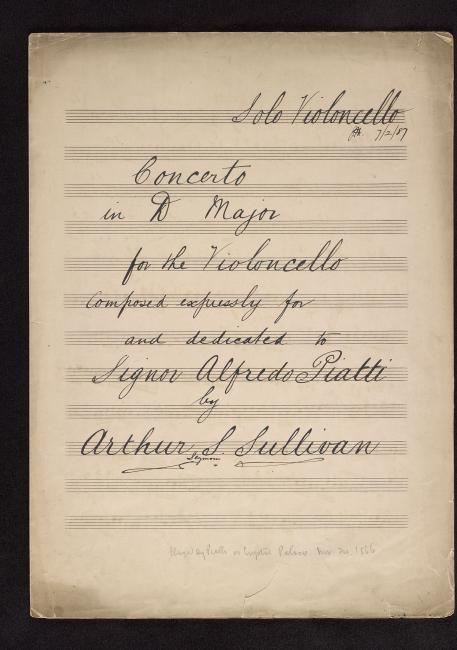 Solo Violoncello
7/2/87
Concerto
in D Major
for the Violoncello
Composed expressly for
and dedicated to
Signor Alfredo Piatti
by
Arthur S. Sullivan
Seymour
Played by Piatti at Crystal Palace. Nov. 24. 1866